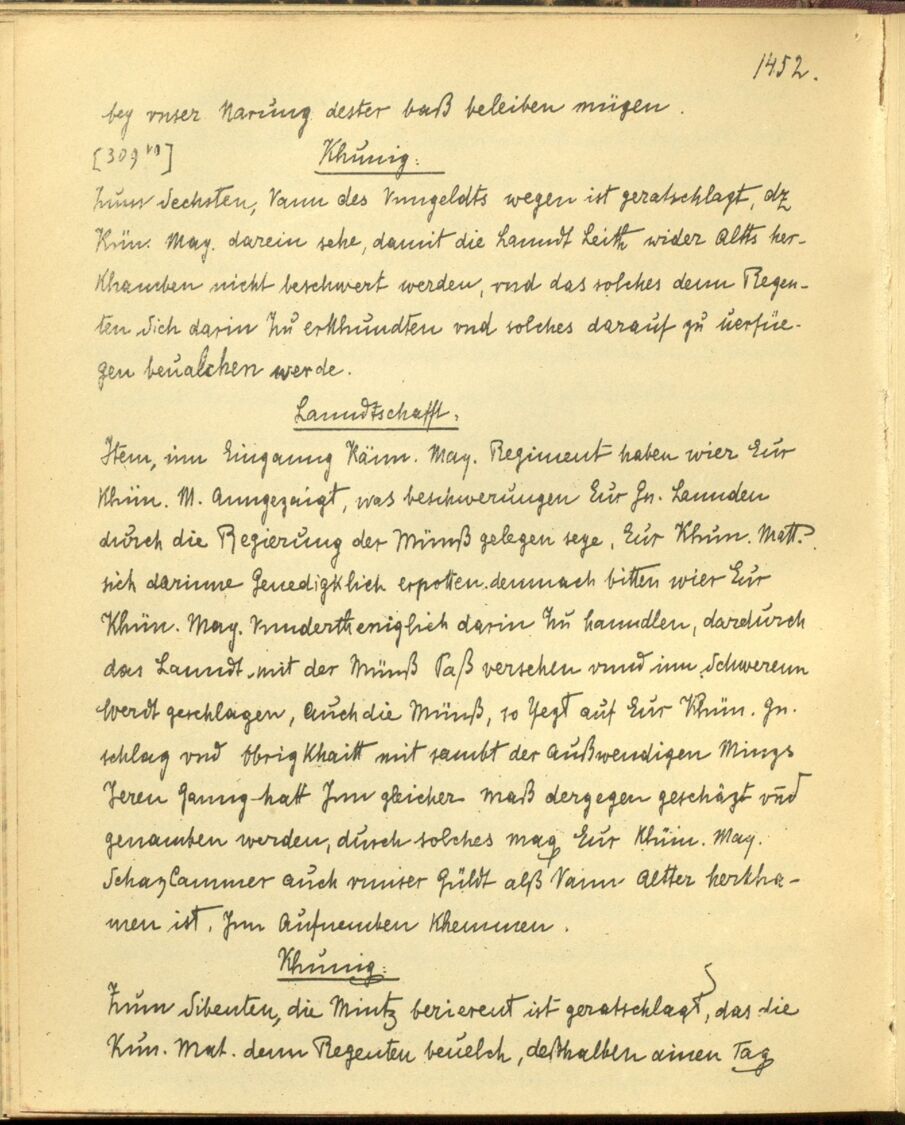 1452.
bey vnser Narung dester baß beleiben mügen.
[309 v0]
Khunig:
Zum Sechsten, Vann des Vnngeldts wegen ist geratschlagt, dz
Kün. May. darein sehe, damit die Lanndt Leith wider Altts her-
khamben nicht beschwert werden, vnd das solches denn Regen-
ten Sich darin Zu erkhundten vnd solches darauf zu uerfüe-
gen beualchen werde.
Lanndtschafft.
Item, im Einganng Künn. May. Regiment haben wier Eur
Khün. M. Anngezaigt, was beschwerungen Eur Gn. Lannden
durch die Regierung der Münß gelegen seye, Eur Khun. Matt.
sich darinne Genedigklich erpotten. demnach bitten wier Eur
Khün. May. Vnndertheniglich darin Zu hanndlen, dardurch
das Lanndt mit der Münß Paß versehen vnnd inn Schwerenn
Werdt geschlagen, Auch die Münß, so Yezt auf Eur Khün. Gn.
schlag vnd ObrigKhaitt mit sambt der Außwendigen Minzs
Jeren Ganng hatt Jnn gleicher maß dergegen geschäzt vnd
genamben werden, durch solches mag Eur Khün. May.
SchazCammer auch vnnser Güldt alß Vann Altter herkha-
men ist, Jnn Aufnemben Khemmen.
Khunig:
Zum Sibenten, die Mintz berierent ist geratschlagt, das die
Kun. Mat. denn Regenten beuelch, deßhalben ainen Tag